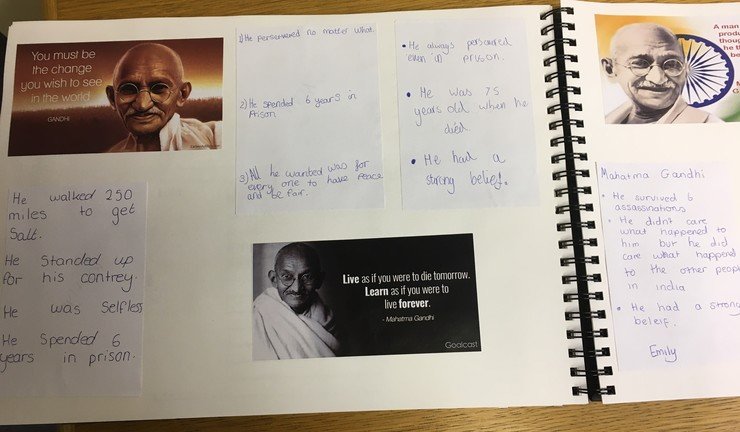 You must be
the change
you wish to see
in the world.
-GANDHI
1) He persevered no matter what.
2) He spended 6 years in
Prison
3) All he wanted was for
every one to have peace
and be fair.
• He always persevered
even in prison.
• He was 75
years old when he
died.
• He had a
strong belief.
He walked 250
miles to get
Salt.
He Standed up
for his contrey.
He was Selfless
He Spended 6
years in prison.
Live as if you were to die tomorrow.
Learn as if you were to
live forever.
- Mahatma Gandhi
Goalcast
A man
produ
thoug
he th
be
G
Mahatma Gandhi
• He survived 6
assassinations
• He didnt care
what happened to
him but he did
care what happened
to the other people
in india
• He had a strong
beleif.
Emily